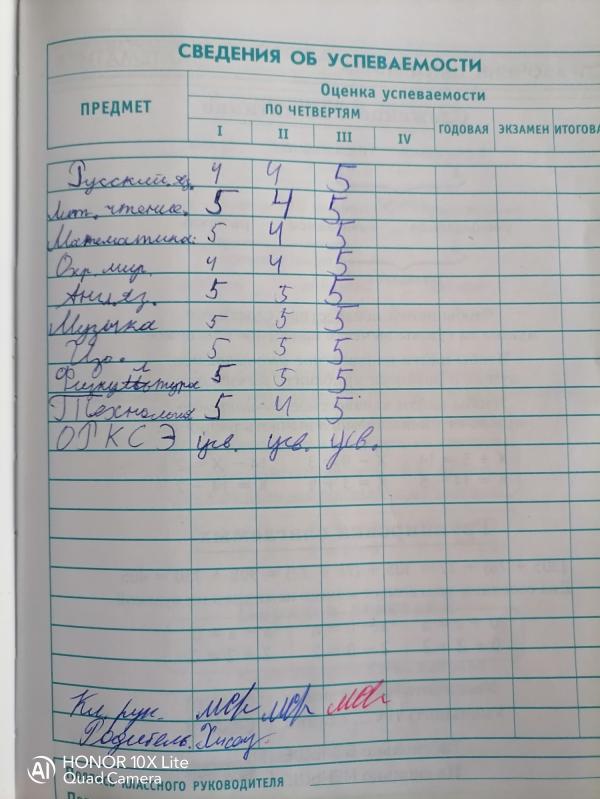 СВЕДЕНИЯ ОБ УСПЕВАЕМОСТИ
ПРЕДМЕТ
Оценка успеваемости
ПО ЧЕТВЕРТЯМ
I II III IV ГОДОВАЯ ЭКЗАМЕН ИТОГОВА
Русский яз. 4 4 5
Лит. чтение. 5 4 5
Математика. 5 4 5
Окр. мир. 4 4 5
Англ. яз. 5 5 5
Музыка 5 5 5
Изо. 5 5 5
Физкультура 5 5 5
Технология 5 4 5
ОРКСЭ усв. усв. усв.
Кл. рук.
Родитель.
AI HONOR 10X Lite
Quad Camera
КЛАССНОГО РУКОВОДИТЕЛЯ